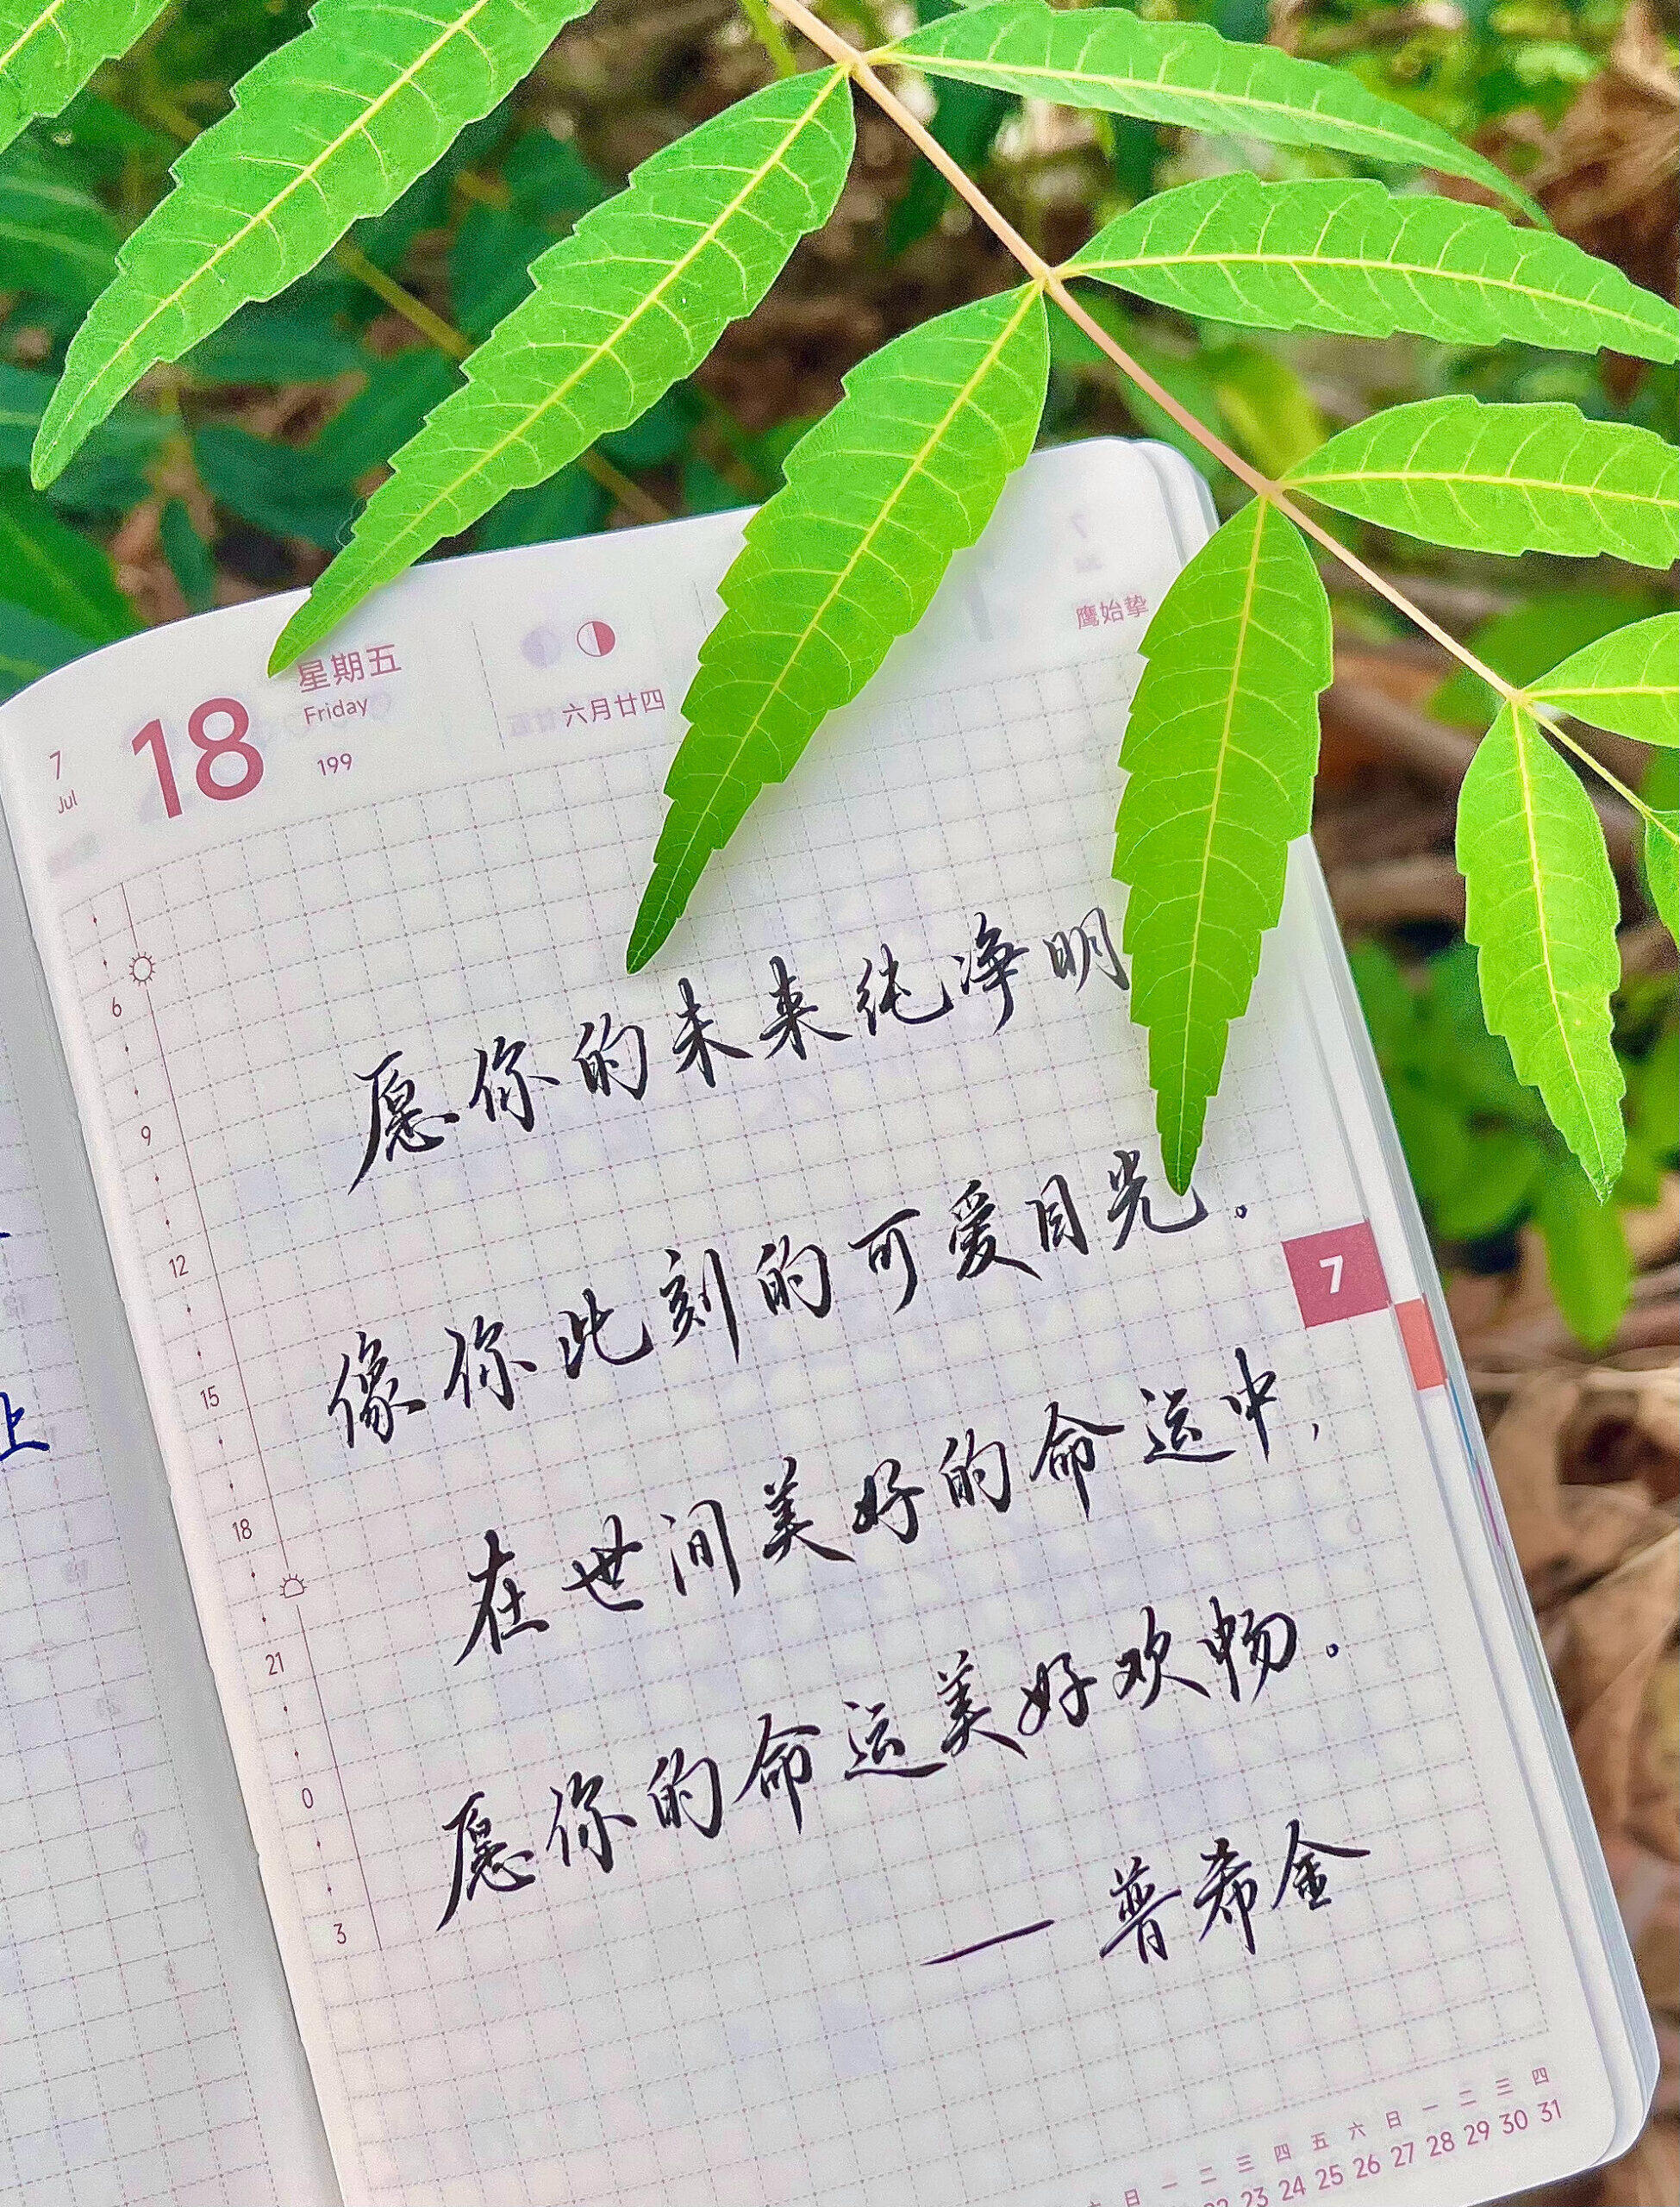 7
Jul
18
星期五
Friday
199
六月廿四
鹰始挚
6
9
12
15
18
21
0
3
愿你的未来纯净明
像你此刻的可爱目光。
在世间美好的命运中，
愿你的命运美好欢畅。
— 普希金
7
上
日 一 二 三 四 五 六 日 一 二 三 四
23 24 25 26 27 28 29 30 31